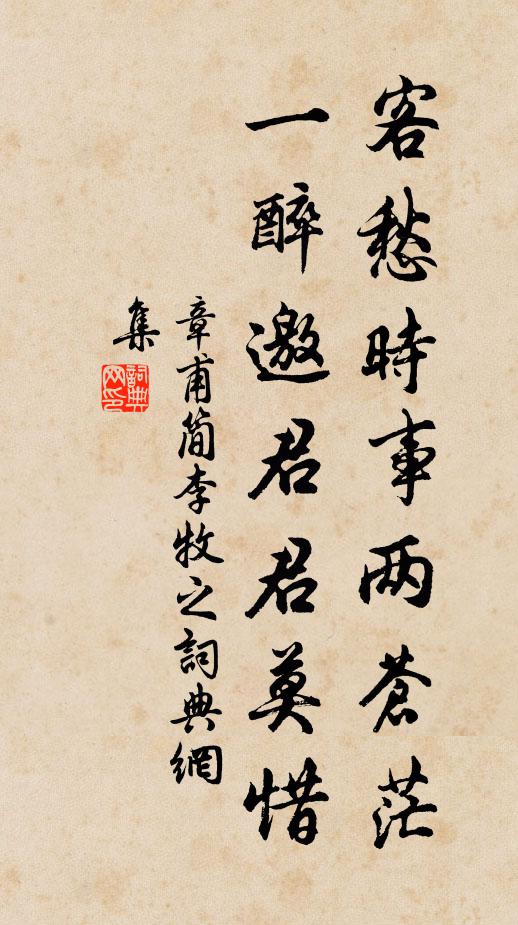 客愁時事两蒼茫
一醉邀君君莫惜
章甫簡李牧之詞典網
集
詞典
网印